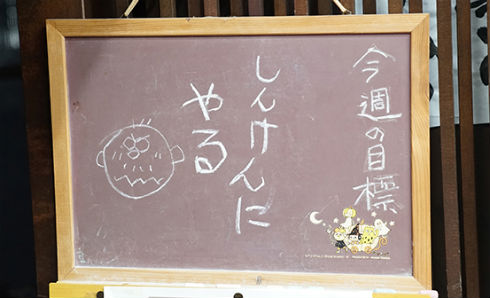 今週の目標
しんけんに
やる